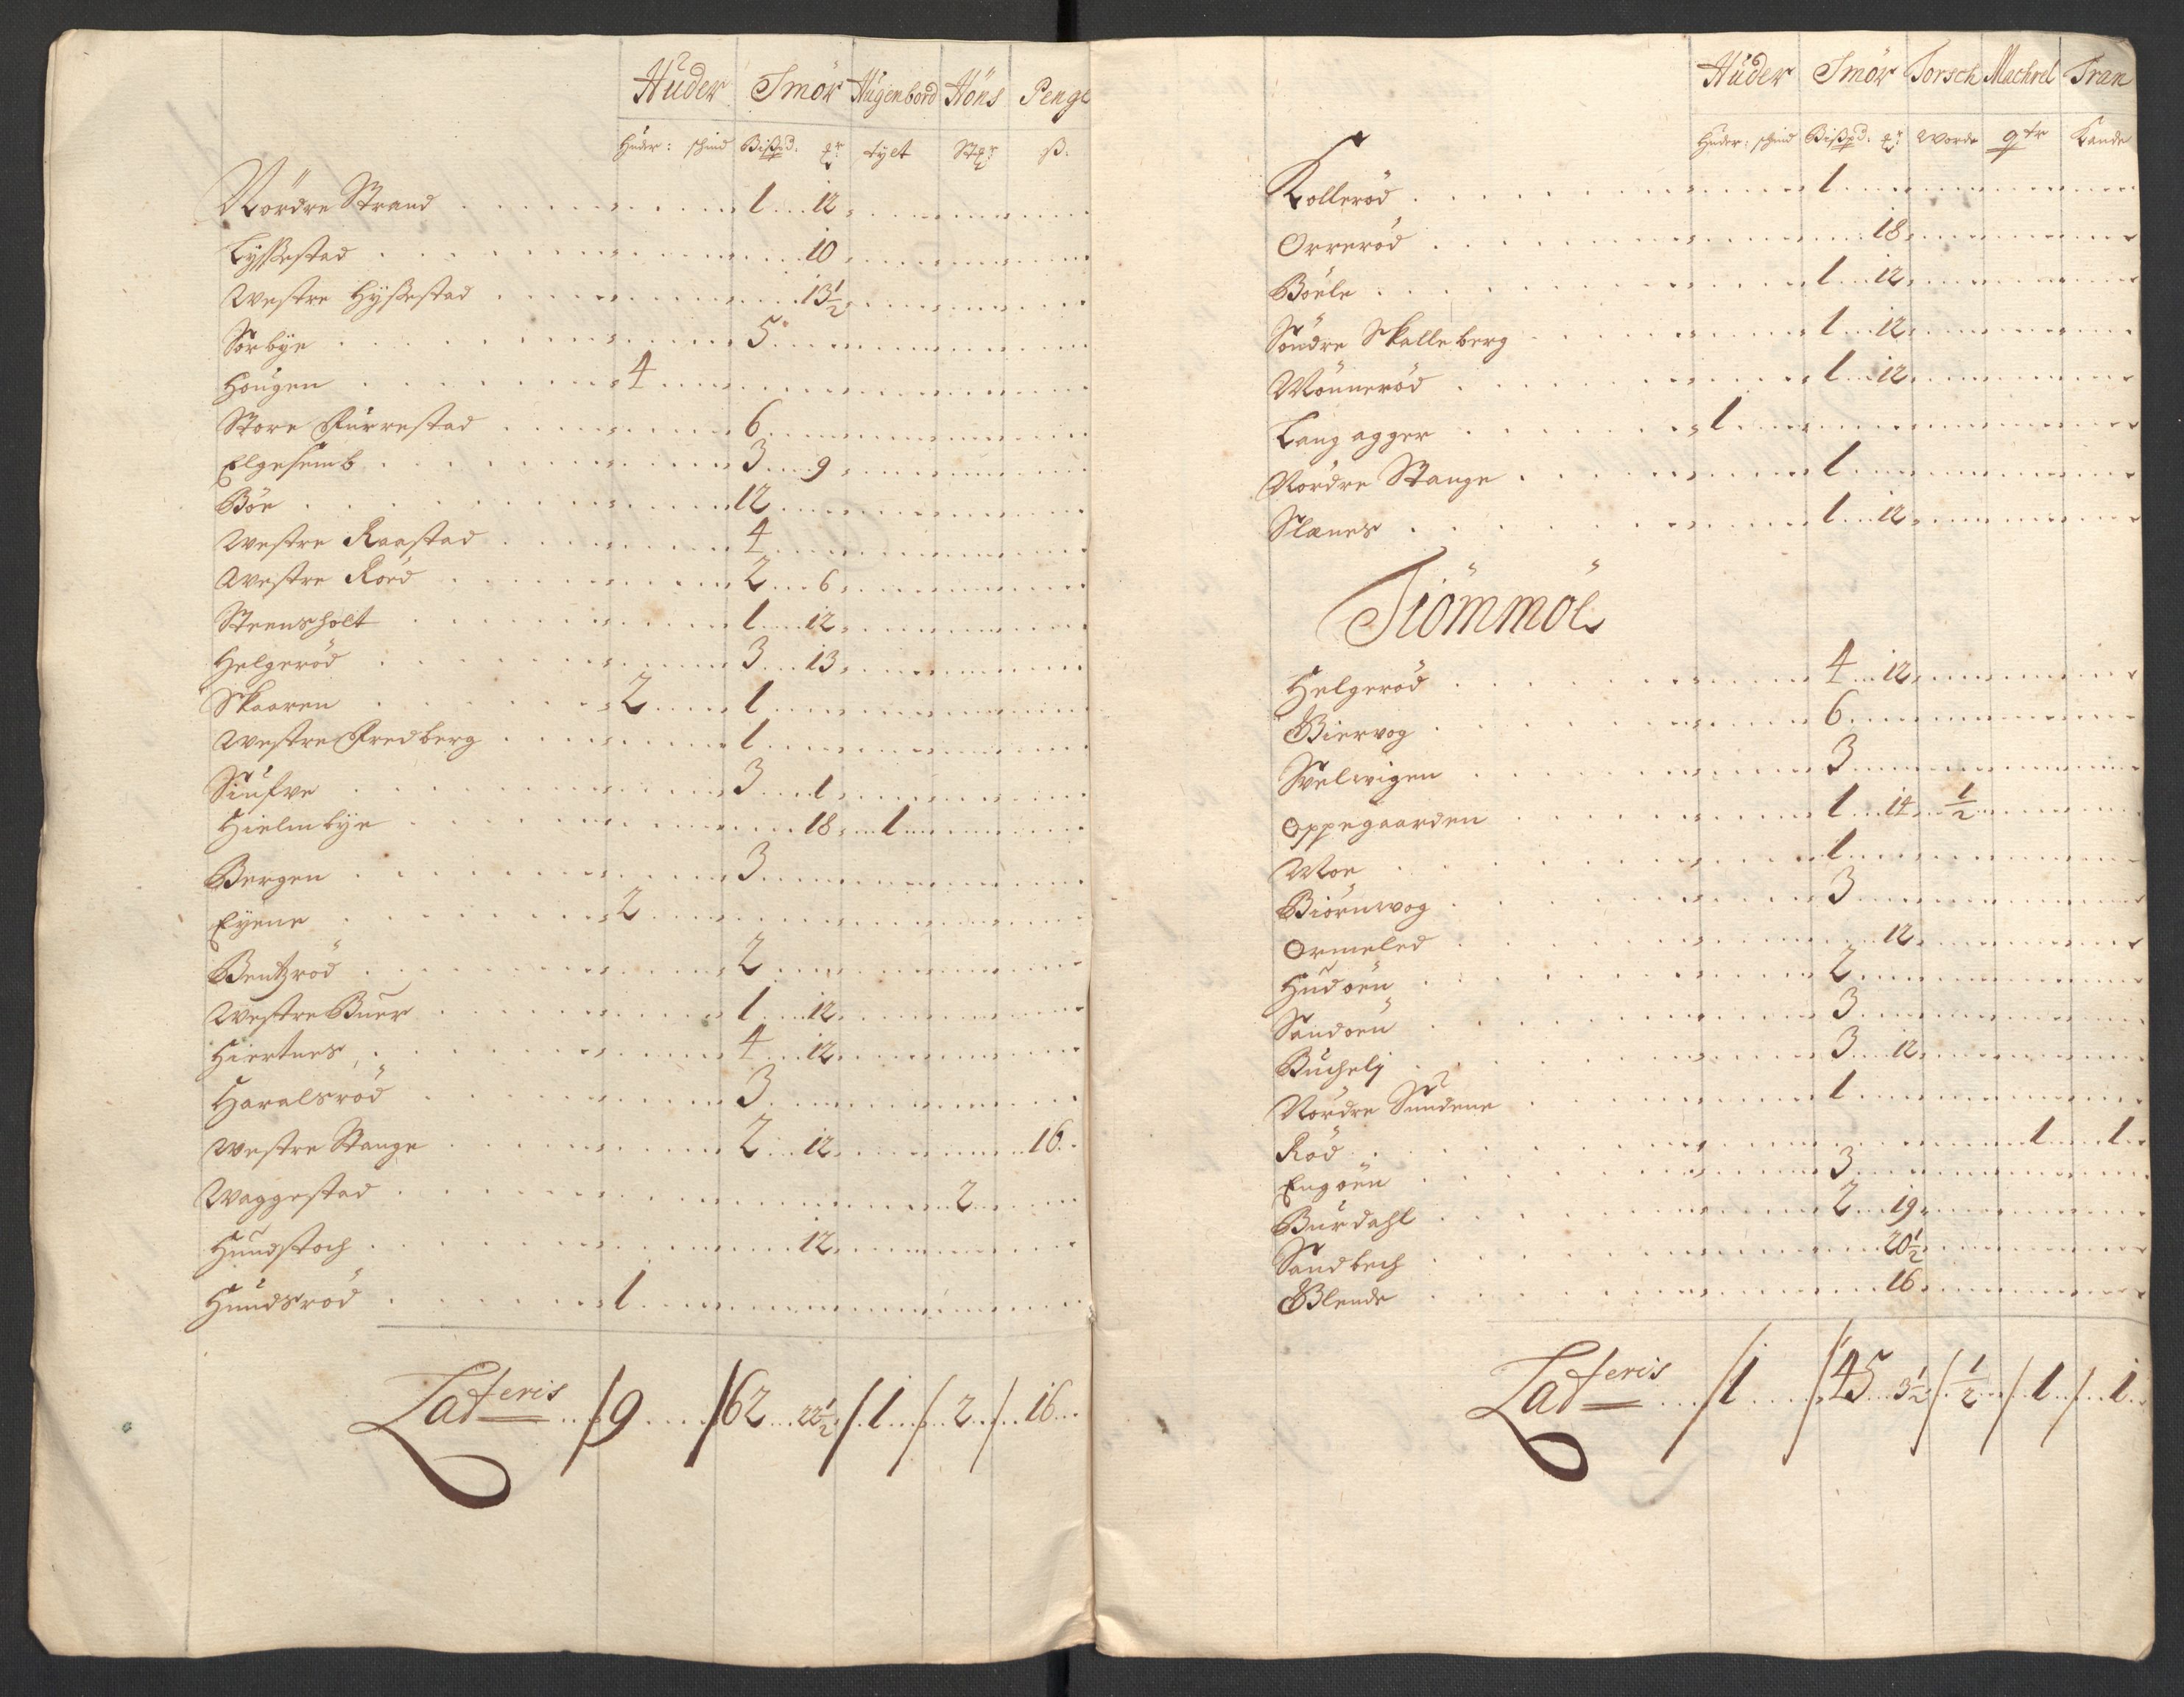 Huder Smör Hugenbord Höns Penge
Huder: schind Bißpd. tylt ß:
Nordre Strand 1 12
Lyßestad 10
Westre Hyßestad 13½
Sörbye 5
Hougen 4
Store Furrestad 6
Elgesemb 3 9
Böe 12
Westre Raastad 4
Westre Röed 2 6
Steensholt 1 12
Helgeröd 3 13
Skaaren 2 1
Westre Fredberg 1
Siufve 3 1
Hielmbye 18 1
Bergen 3
Eyene 2
Bentzröd 2
Westre Buer 1 12
Hiertnes 4 12
Haralsröd 3
Westre Stange 2 12 16
Waggestad 2
Hundstoch 12
Hundsröd 1
Lateris 9 62 22½ 1 2 16
Huder Smör Torsch Machrel Tran
Huder: schind Bißpd. Worde qtr Kande
Kolleröd 1
Orreröd 18
Böele 1 12
Söndre Skalleberg 1 12
Mönneröd 1 12
Lang agger 1
Nordre Stange 1
Slanes 1 12
Tiömmöe
Helgeröd 4 12
Biervog 6
Svelwigen 3
Oppegaarden 1 14 ½
Moe 1
Biörnwog 3
Ormeled 12
Hudöen 2
Sandöen 3
Buchelj 3 12
Nordre Sundene 1
Röd 1 1
Engöen 3
Burdahl 2 19
Sandbech 20½
Blende 16
Lateris 1 45 3½ ½ 1 1